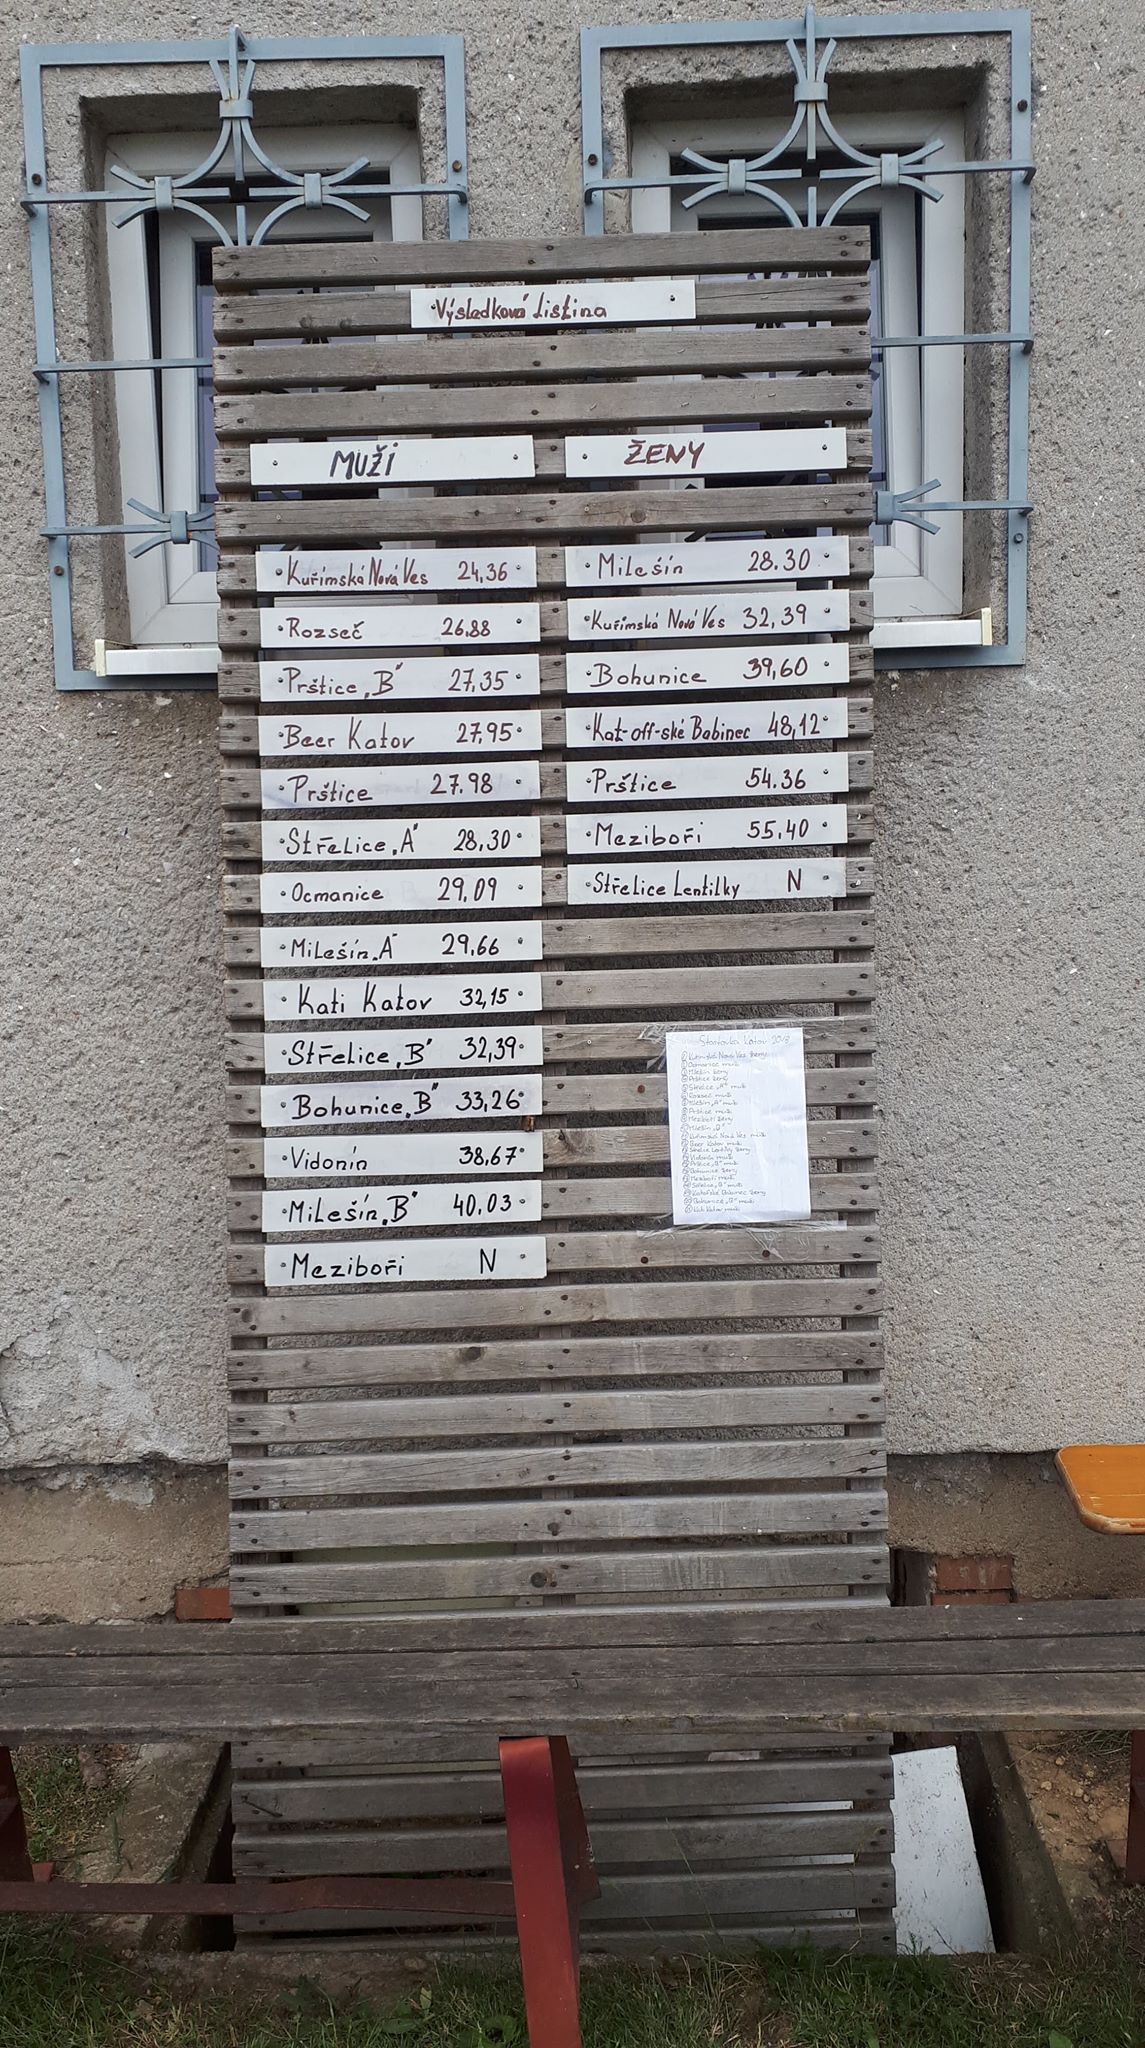 Výsledková Listina
MUŽI
Kuřimská Nová Ves 24,36
Rozseč 26,88
Prštice „B" 27,35
Beer Katov 27,95
Prštice 27.98
Střelice „A" 28,30
Ocmanice 29,09
Milešín „A" 29,66
Kati Katov 32,15
Střelice „B" 32,39
Bohunice „B" 33,26
Vidonín 38,67
Milešín „B" 40,03
Meziboři N
ŽENY
Milešín 28.30
Kuřimská Nová Ves 32,39
Bohunice 39,60
Kat-off-ské Babinec 48,12
Prštice 54.36
Meziboři 55,40
Střelice Lentilky N
Startovka Katov 2018
Kuřimská Nová Ves ženy
Ocmanice muži
Milešín ženy
Prštice ženy
Střelice „A" muži
Rozseč muži
Milešín „A" muži
Prštice muži
Meziboří ženy
Milešín „B"
Kuřimská Nová Ves muži
Beer Katov muži
Střelice Lentilky ženy
Vidonín muži
Prštice „B" muži
Bohunice ženy
Meziboří muži
Střelice „B" muži
Babinec ženy
Bohunice „B" muži
Kati Katov muži